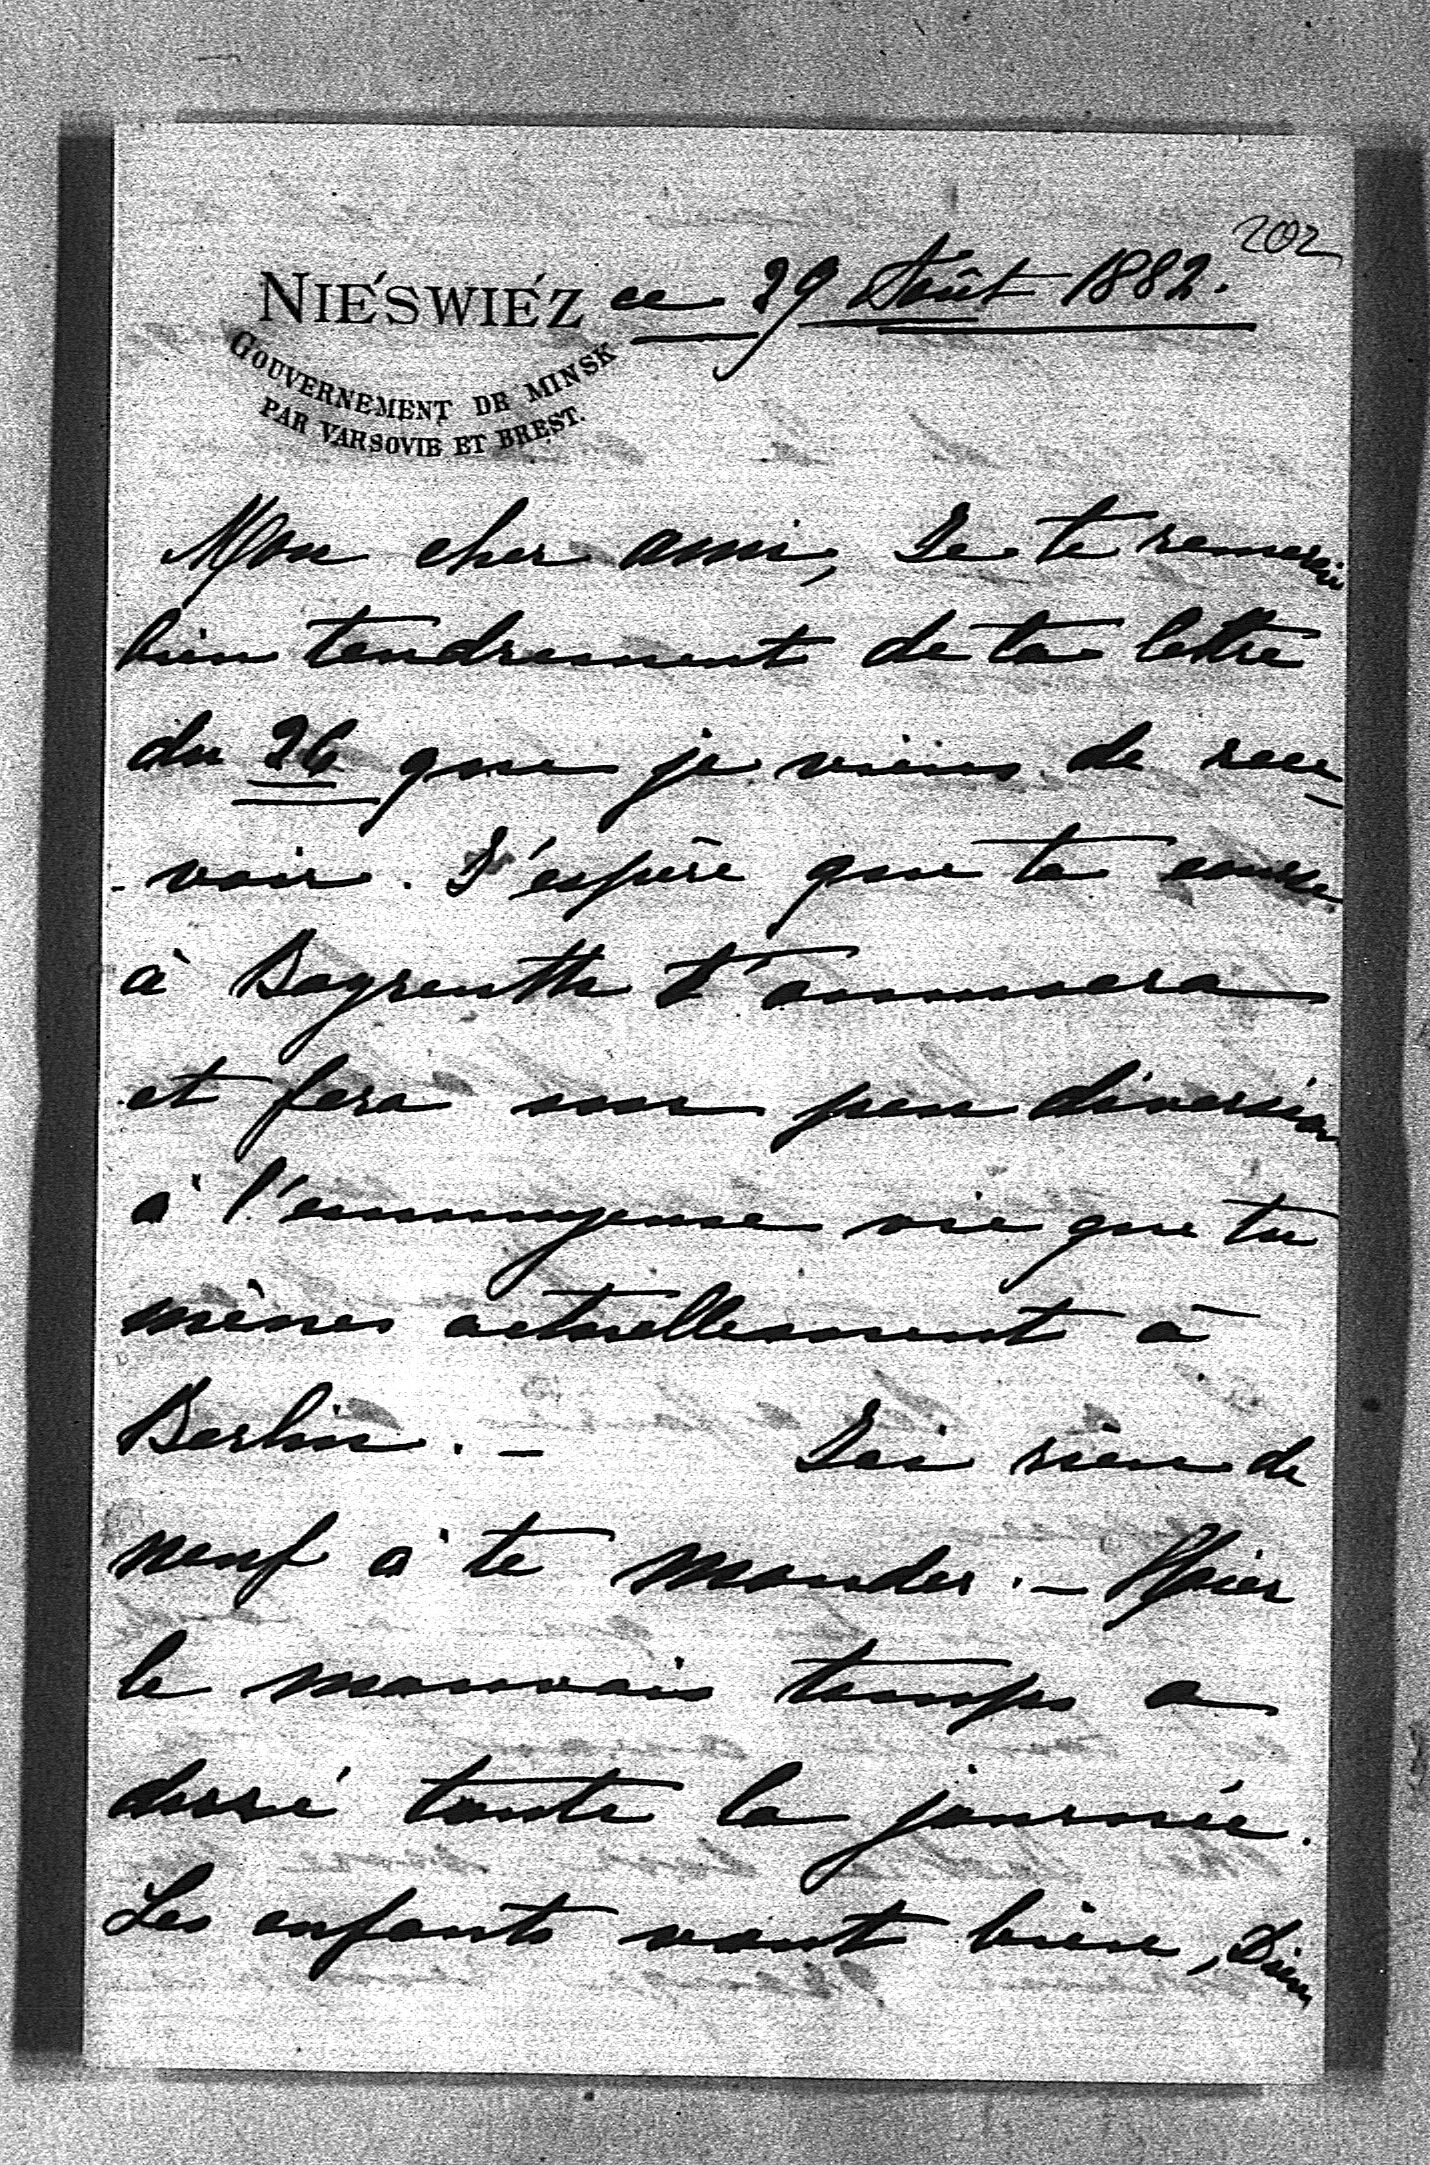 202
NIEŚWIÉZ ce 29 Août 1882.
GOUVERNEMENT DE MINSK
PAR VARSOVIE ET BREST.
Mon cher ami, Je te remercie
bien tendrement de ta lettre
du 26 que je viens de rece-
-voir. J'espère que ta course
à Bayreuth t'amusera
et fera un peu diversion
à l'ennuyeuse vie que tu
mènes actuellement à
Berlin. – Ici rien de
neuf à te mander. – Hier
le mauvais temps a
duré toute la journée.
Les enfants vont bien, Dieu